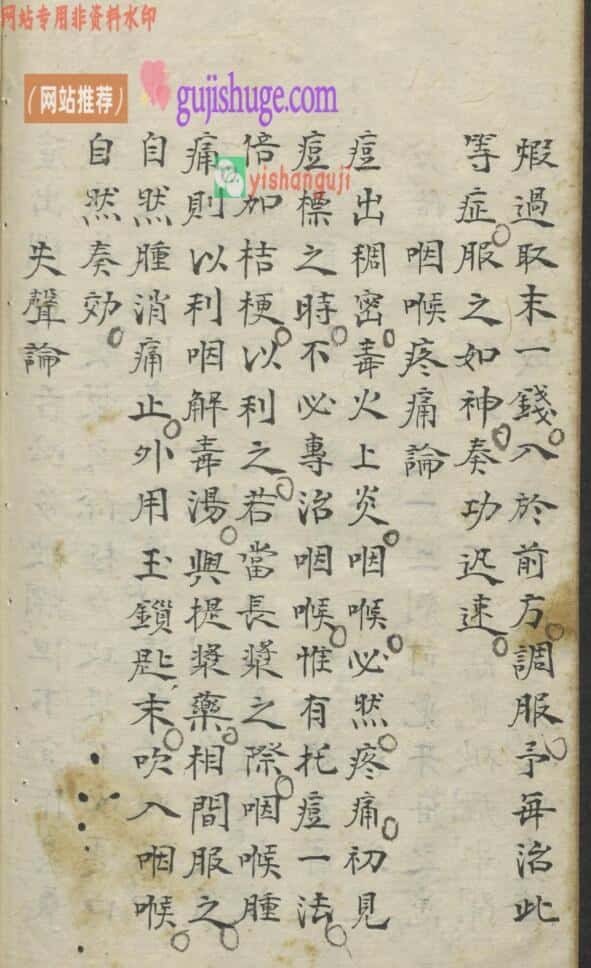 网站专用非资料水印
（网站推荐）
gujishuge.com
yishanguji
煅過取末一錢入於前方調服予每治此
等症服之如神奏功迅速
咽喉疼痛論
痘出稠密毒火上炎咽喉必然疼痛初見
痘標之時不必專治咽喉惟有托痘一法
倍加桔梗以利之若當長漿之際咽喉腫
痛則以利咽解毒湯與提漿藥相間服之
自然腫消痛止外用玉鎖匙末吹入咽喉
自然奏効
失聲論